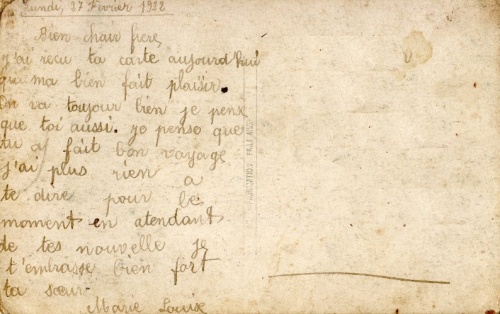 Lundi, 27 Fevrier 1922
Bien chair frere,
j'ai recu ta carte aujourd'hui
qui ma bien fait plaisir.
On va toujour bien je pense
que toi aussi. je pense que
tu a fait bon voyage
j'ai plus rien a
te dire pour le
moment en atendant
de tes nouvelle je
t'embrasse bien fort
ta sœur
Marie Louise